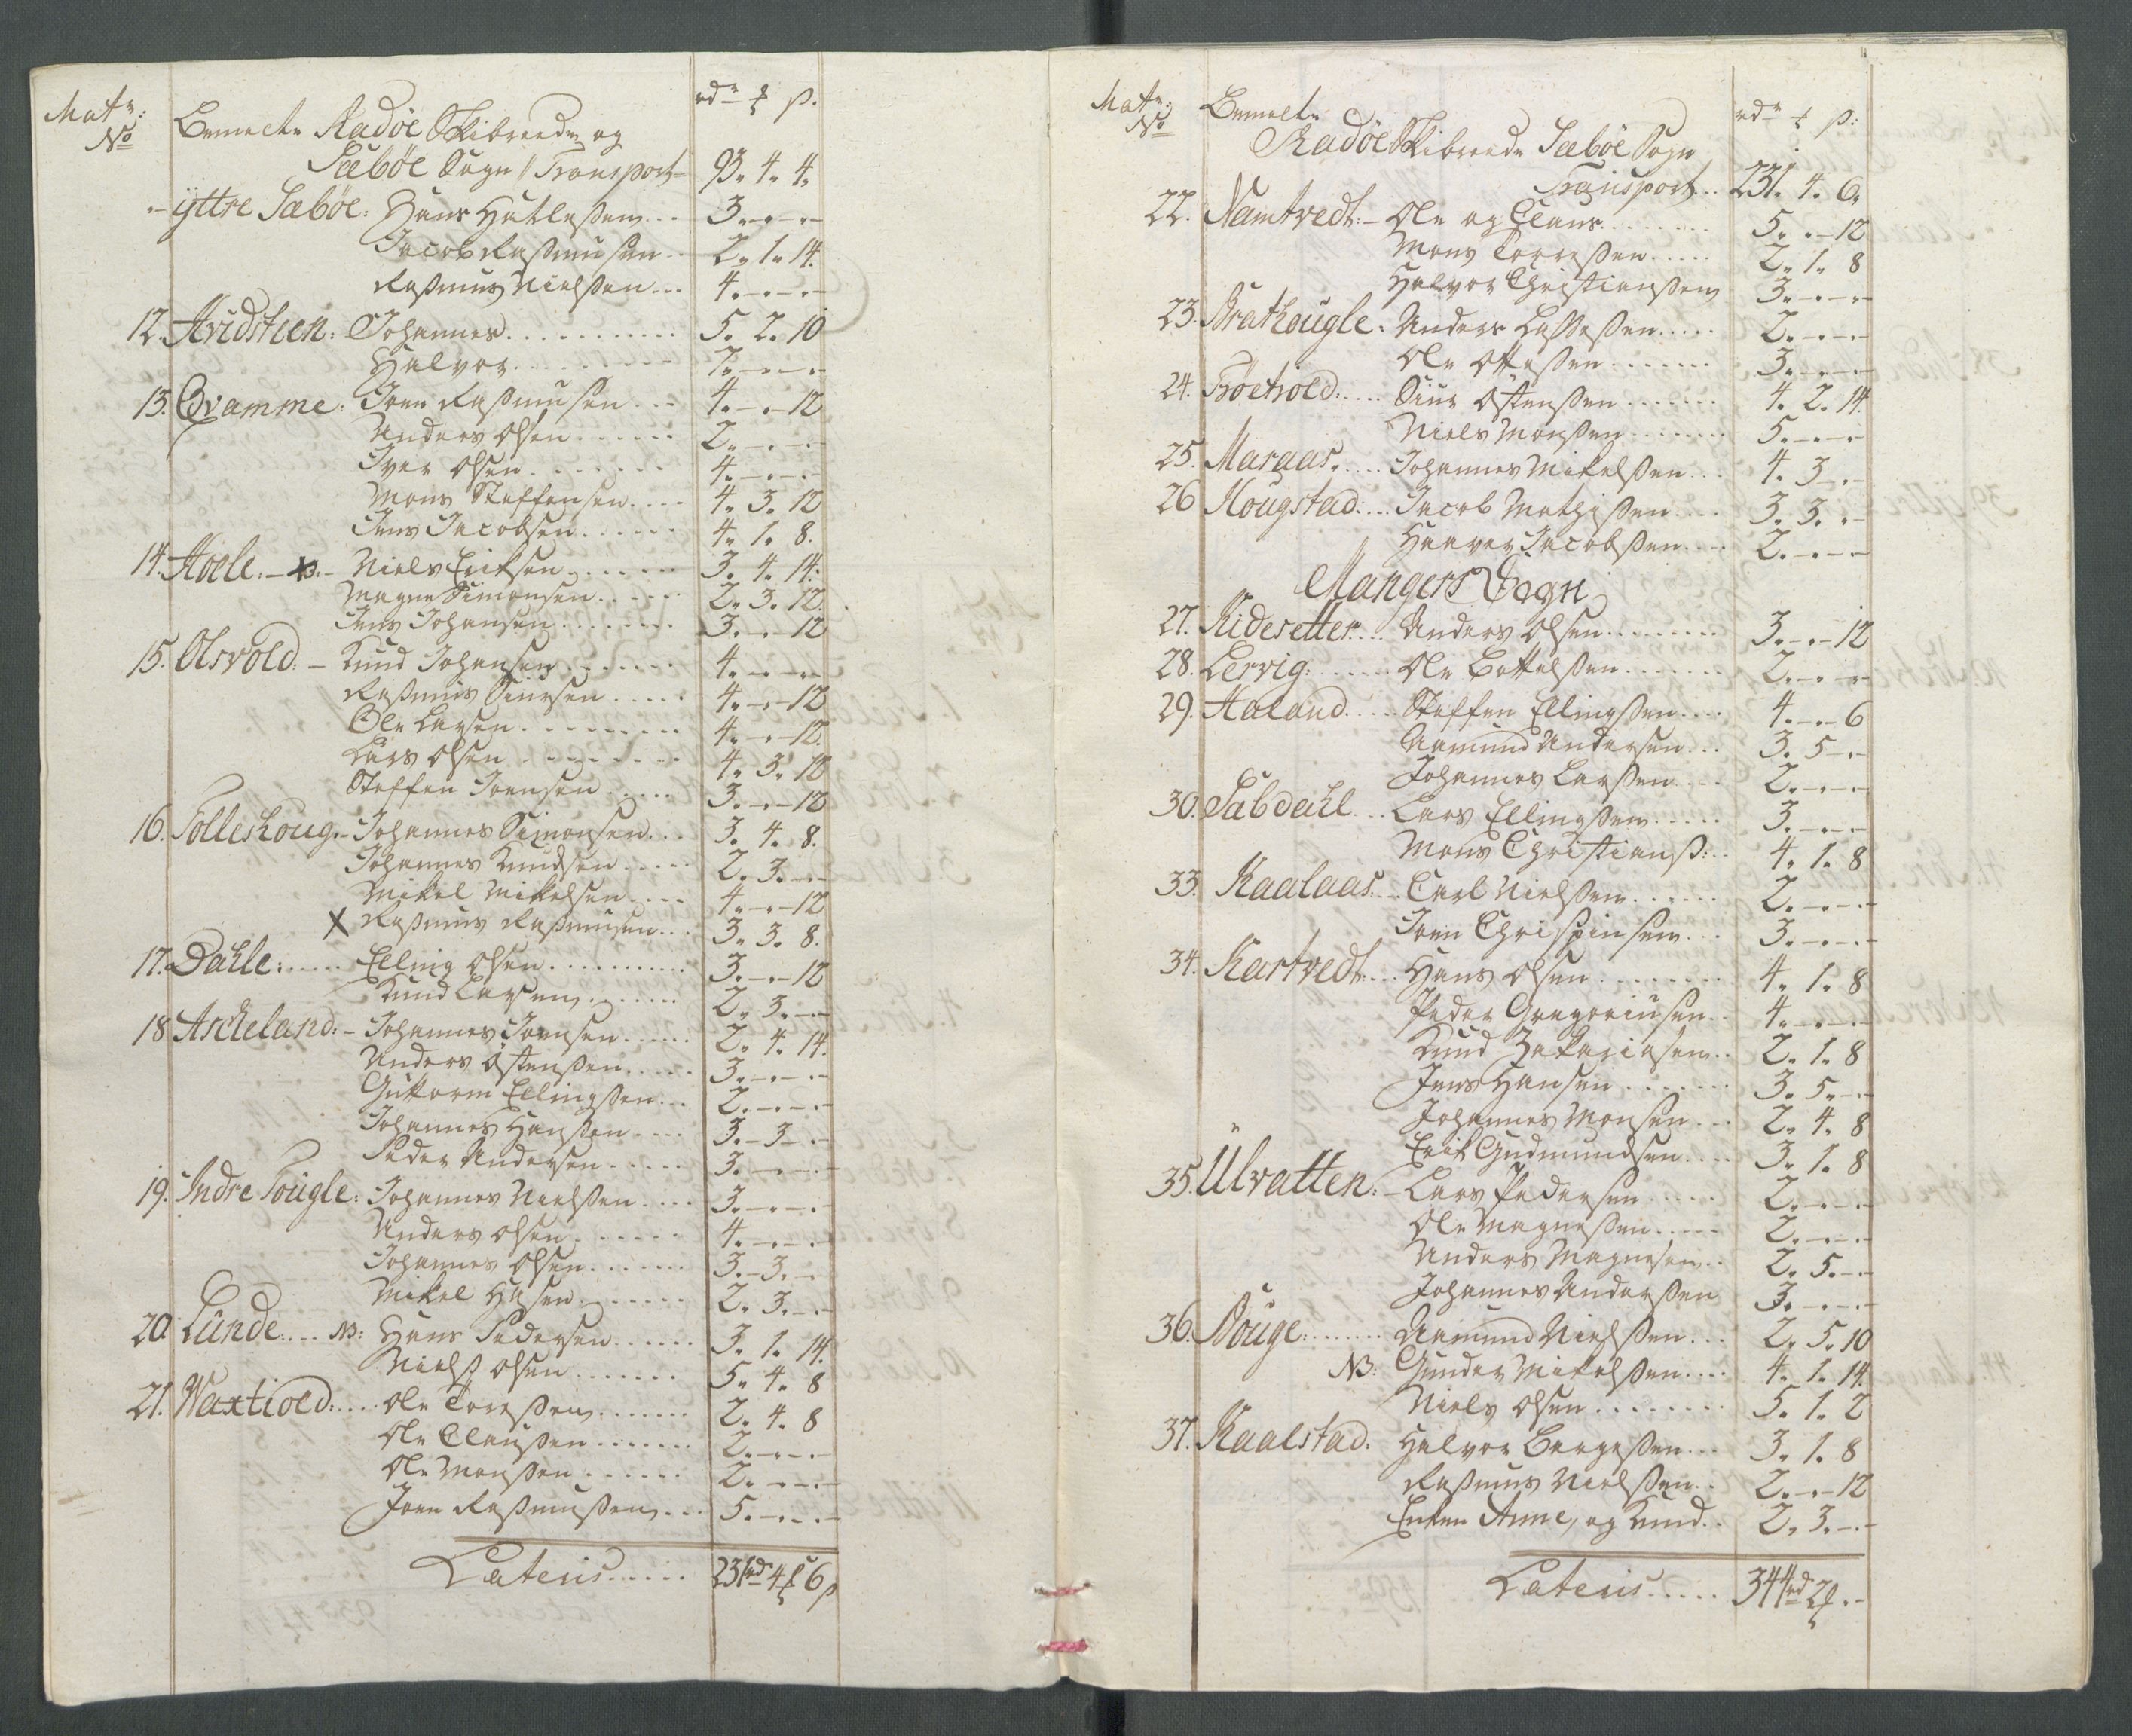 Matr: No
rdr ₰ ß.
Bemeelte Radöe Skibreede og
Sæböe Sogn // Transport 93. 4. 4.
- ÿttre Sæböe: Hans Hatleßen... 3. - . -
Jacob Raßmusen.. 2. 1. 14.
Raßmus Nielßen... 4. - . -
12. Hvidstien: Johannes.......... 5. 2. 10
Halvor......... 2. - . -
13. Qvamme: Joen Raßmusen... 4. - . - 12
Anders Olsen...... 2. - . -
Iver Olsen........ 4. - . -
Mons Steffensen.... 4. 3. 12
Jens Jacobsen...... 4. 1. 8.
14. Hoele: - NB: - Niels Eriksen....... 3. 4. 14.
Magne Simonsen...... 2. 3. 12.
Jens Johansen........ 3. - . - 12
15. Olsvold: - Knud Johansen....... 4. - . -
Raßmus Siursen..... 4. - . - 12
Ole Larsen......... 4. - . - 12.
Lars Olsen......... 4. 3. 12
Steffen Joensen..... 3. - . - 12
16. Tolleshoug. - Johannes Simonsen... 3. 4. 8.
Johannes Knudsen..... 2. 3. - . -
Mikel Mikelsen.... 4. - . - 12
X Raßmus Raßmusen... 3. 3. 8.
17. Dahle:..... Elling Olsen........... 3. - . - 12
Knud Larsen....... 2. 3. - . -
18 Askeland: - Johannes Joensen...... 2. 4. 14.
Anders Östenßen..... 3. - . -
Guttorm Ellingßen... 2. - . -
Johannes Hanßen.... 3. - 3 - . -
Peder Andersen..... 3. - . -
19. Indre Tougle: Johannes Nielßen.... 3. - . -
Anders Olsen...... 4. - . -
Johannes Olsen...... 3. - 3. -
Mikel Hansen....... 2. 3. - . -
20. Lünde:.... NB: Hans Pedersen...... 3. 1. 14.
Nielß Olsen....... 5. 4. 8
21. Waxtiold:.... Ole Toreßen....... 2. 4. 8
Ole Claußen....... 2. - . -
Ole Monßen...... 2. - . -
Joen Raßmußen... 5. - . -
Lateris..... 231rdr 4₰ 6ß
Matr: No
rdr ₰ ß:
Bemeelte
Radöe Skibreede Sæböe Sogn
Transport.. 231. 4. 6.
22. Namtvedt: - Ole og Claus........ 5. . - 12
Mons Torreßen..... 2. 1. 8
Halvor Christianßen 3. - . -
23. Brathougle: Anders Laßeßen..... 2. - . -
Ole Otteßen....... 3. - . -
24. Tröetvold:.... Siur Östenßen....... 4. 2. 14.
Niels Monßen....... 5. - . -
25. Maraas..... Johannes Mikelßen... 4. 3 . -
26 Hougstad:... Jacob Mathißen.... 3. 3. . -
Haaver Jacobßen.... 2. - . -
Mangers Sogn
27. Kidesetter... Anders Olsen........ 3. - . - 12
28. Lervig:...... Ole Bottelßen....... 2. - . -
29. Haland..... Steffen Ellingßen.... 4. - . - 6
Aamund Andersen... 3. 5 - . -
Johannes Larßen.... 2. - . -
30. Sæbdahl... Lars Ellingßen..... 3. - . -
Mons Christianß:.. 4. 1. 8
33. Kaalaas... Carl Nielßen...... 2. - . -
Joen Chrispinsen... 3. - . -
34. Kartvedt.... Hans Olsen......... 4. 1. 8
Peder Gregoriusen.. 4. - . -
Knud Zakariasen.. 2. 1. 8
Jens Hansen....... 3. 5. - . -
Johannes Monsen... 2. 4. 8
Erik Gudmundsen.... 3. 1. 8
35. Ülvatten: - Lars Pedersen...... 2. - . -
Ole Magneßen..... 2. - . -
Anders Magnesen.. 2. 5. - . -
Johannes Anderßen 3. - . -
36. Bouge:....... Aamund Nielßen.... 2. 5. 10
NB: Gunder Mikelßen.... 4. 1. 14.
Niels Olsen........ 5. 1. 2
37. Kaalstad. Halvor Bergeßen... 3. 1. 8
Raßmus Nielßen.. 2. - . - 12
Enken Anne, og Knud.. 2. 3. - . -
Lateris..... 344rdr 2₰ . -